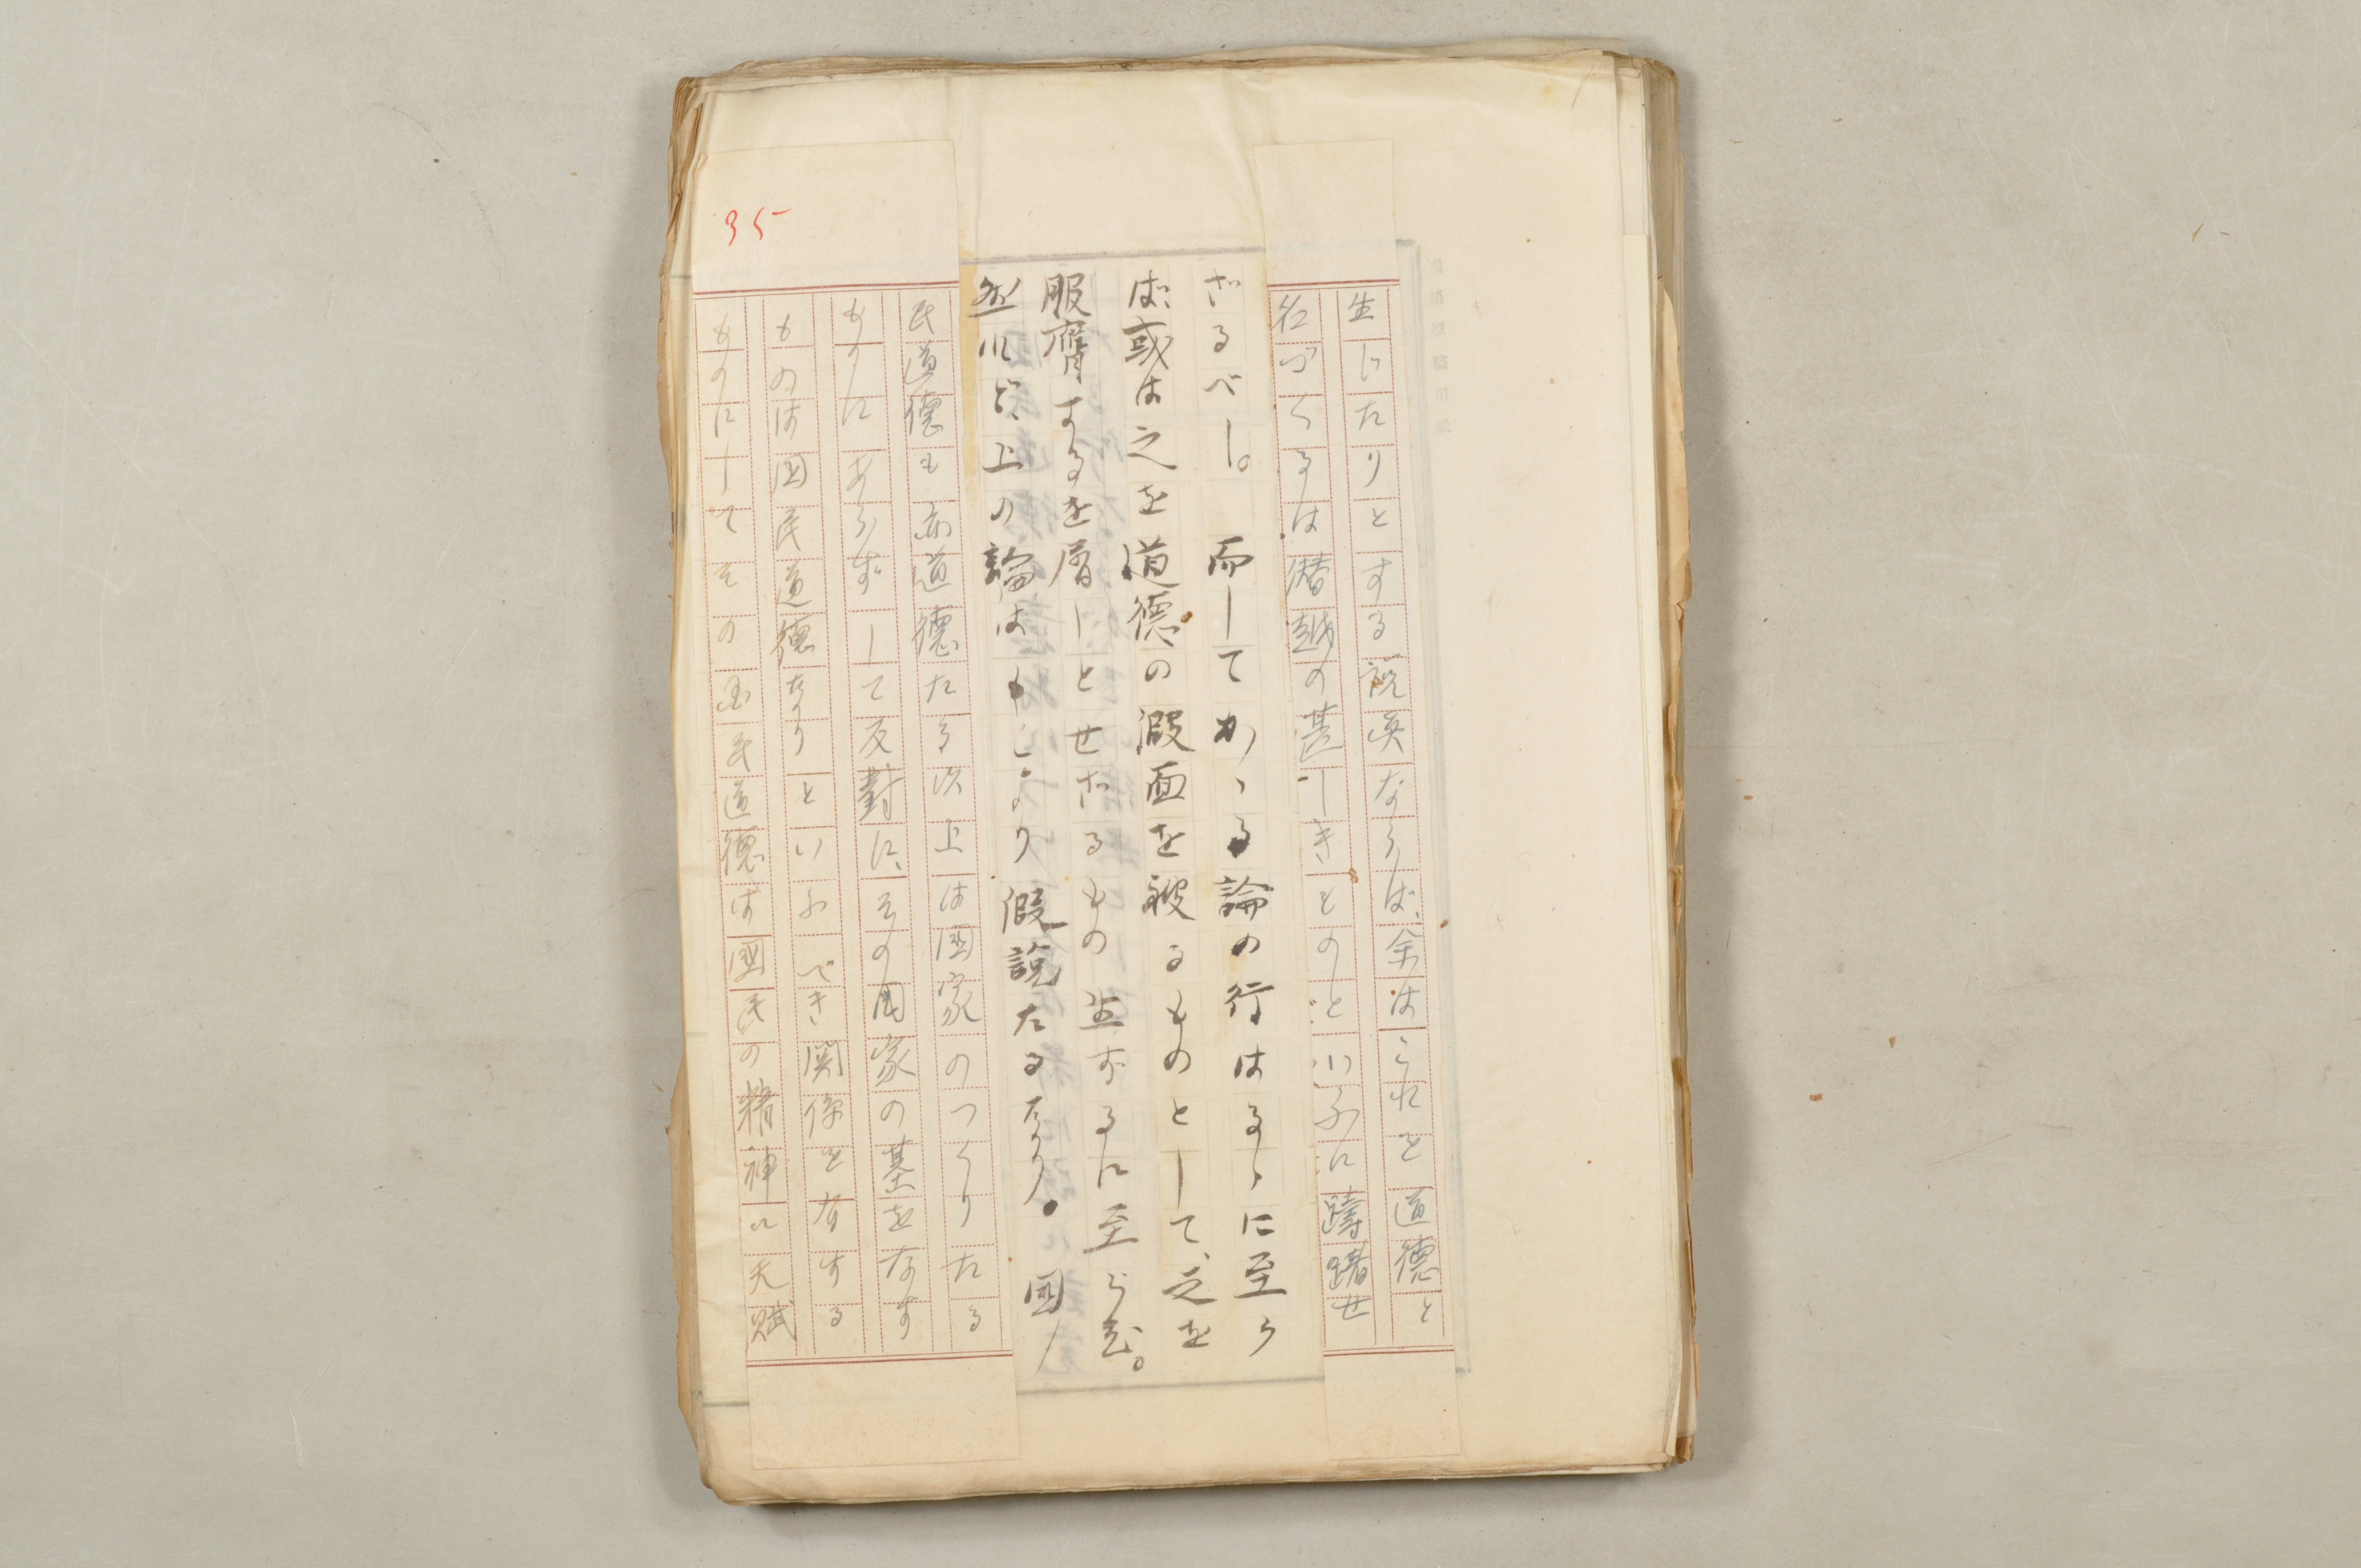 生じたりとする説真ならば、余はこれを道德と
名づくるは潜越の甚しきものといふに躊躇せ
ざるべし。而してかゝる論の行はるゝに至ら
ば、或は之を道德の假面を被るものとして、之を
服膺するを屑しとせざるもの生ずるに至らむ。
然れど、上の論はもとより假説たるなり。国
民道德も亦道德たる以上は国家のつくりたる
ものにあらずして反對に、その国家の基をなす
ものは国民道德なりといふべき関係を有する
ものにしてその国民道德は國民の精神に天賦
35